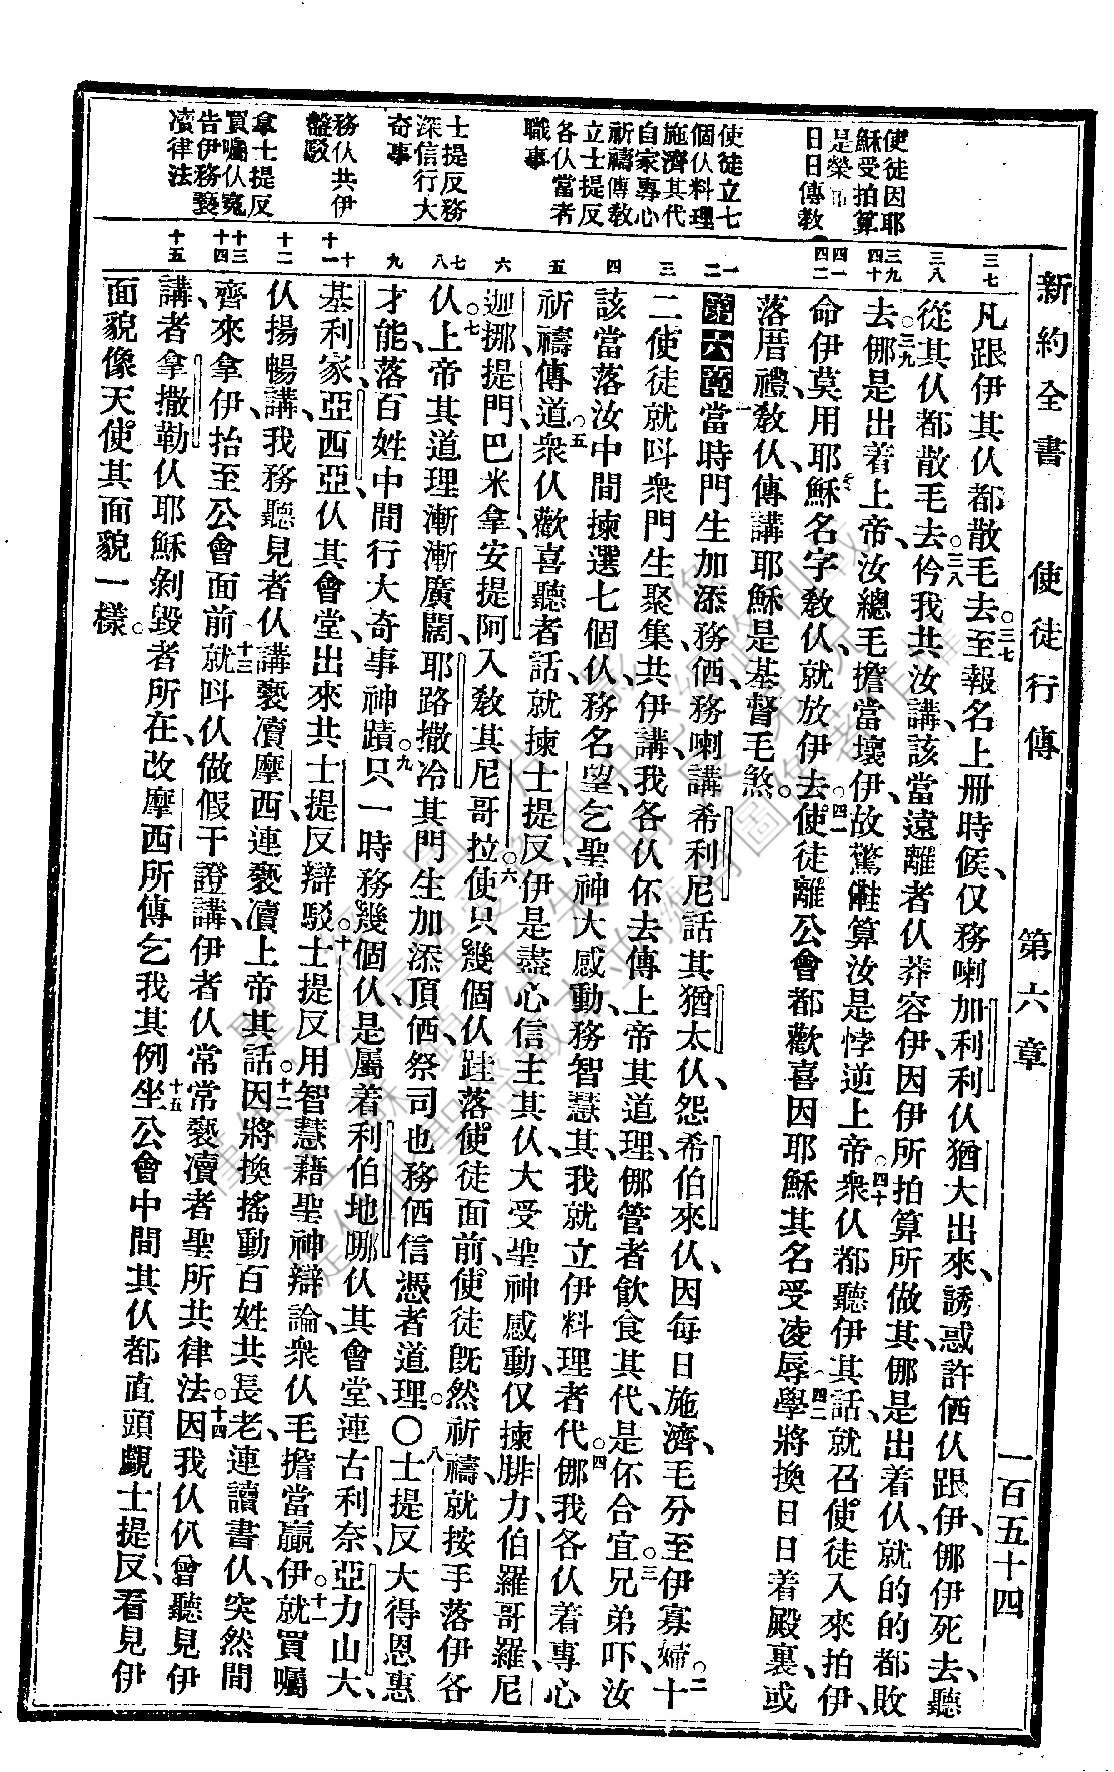 新約全書 使徒行傳 第六章 一百五十四
使徒因耶
穌受拍算
是榮
日日傳教
使徒立七
個仈料理
施濟其代
自家專心
祈禱傳教
立士提反
各仈當者
職事
士提反務
深信行大
奇事
務仈共伊
盤駁
拿士提反
買囑仈寃
告伊務褻
瀆律法
三七
三八
三九
四十
四一
四二
一
二
三
四
五
六
七
八
九
十
十一
十二
十三
十四
十五
凡跟伊其仈都散毛去。三七至報名上册時候、仅務喇加利利仈猶大出來、誘惑許価仈跟伊、倻伊死去、聽
從其仈都散毛去。三八仱我共汝講、該當遠離者仈、莽容伊、因伊所拍算所做其、倻是出着仈、就的的都敗
去。三九倻是出着上帝、汝總毛擔當壞伊、故驚𠆧算汝是悖逆上帝。四十衆仈都聽伊其話、就召使徒入來拍伊、
命伊莫用耶穌名字教仈、就放伊去。四一使徒離公會、都歡喜因耶穌其名受凌辱。四二學將換日日着殿裏、或
落厝禮、教仈、傳講耶穌是基督毛煞。
第六章 一當時門生加添務価、務喇講希利尼話其猶太仈、怨希伯來仈、因每日施濟、毛分至伊寡婦。二十
二使徒就呌衆門生聚集、共伊講、我各仈伓去傳上帝其道理、倻管者飲食其代、是伓合宜。三兄弟吓、汝
該當落汝中間揀選七個仈、務名望、乞聖神大感動、務智慧其、我就立伊料理者代。四倻我各仈着專心
祈禱、傳道。五衆仈歡喜聽者話、就揀士提反、伊是盡心信主其仈、大受聖神感動、仅揀腓力、伯羅哥羅、尼
迦挪、提門、巴米拿、安提阿入教其尼哥拉。六使只幾個仈跬落使徒面前、使徒既然祈禱、就按手落伊各
仈。七上帝其道理漸漸廣闊、耶路撒冷其門生加添頂価、祭司也務価信憑者道理。○八士提反大得恩惠
才能、落百姓中間行大奇事神蹟。九只一時務幾個仈、是屬着利伯地哪仈其會堂、連古利奈、亞力山大、
基利家、亞西亞仈其會堂出來、共士提反辯駁。十士提反用智慧藉聖神辯論、衆仈毛擔當贏伊。十一就買囑
仈揚暢講、我務聽見者仈講褻瀆摩西、連褻瀆上帝其話。十二因將換搖動百姓共長老、連讀書仈、突然間
齊來、拿伊抬至公會面前。十三就呌仈做假干證講、伊者仈常常褻瀆者聖所共律法。十四因我仈仈曾聽見伊
講、者拿撒勒仈耶穌剝毀者所在、改摩西所傳乞我其例。十五坐公會中間其仈、都直頭覷士提反、看見伊
面貌像天使其面貌一樣。